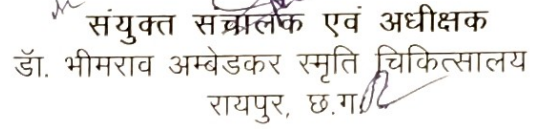 संयुक्त सचालक एवं अधीक्षक
डॉ. भीमराव अम्बेडकर स्मृति चिकित्सालय
रायपुर, छ.ग.